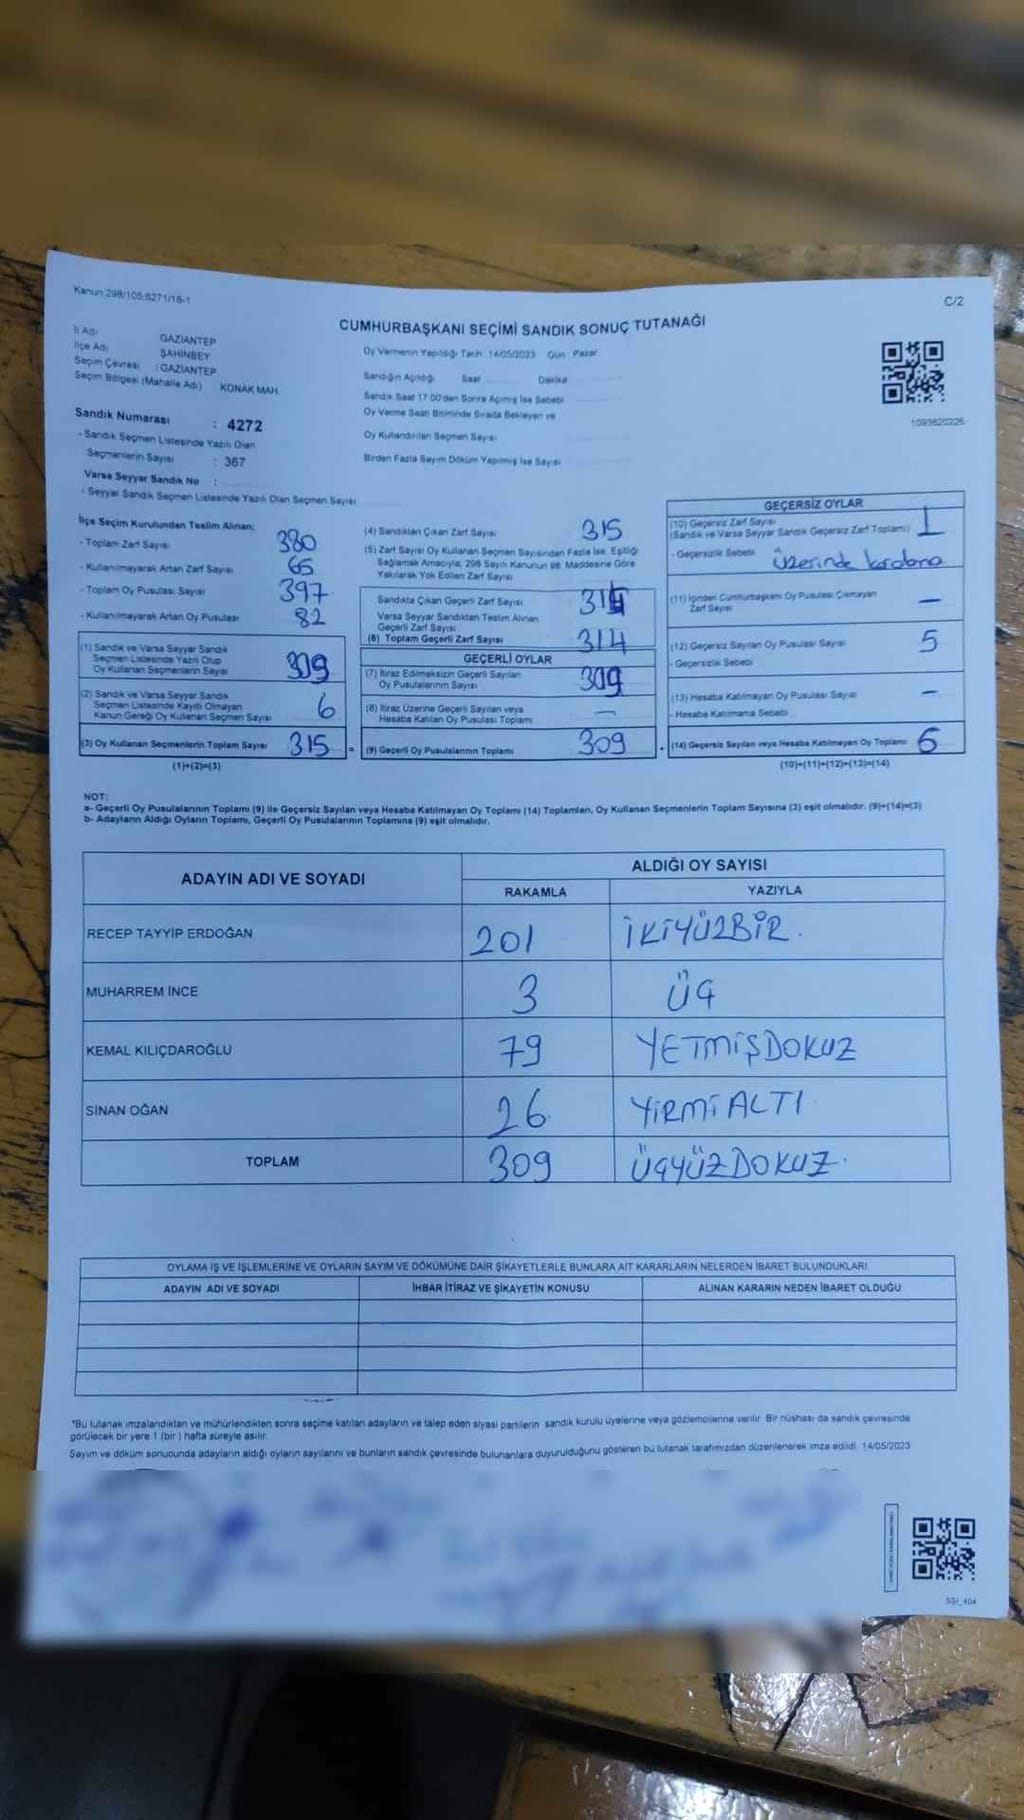 Kanun:298/105,6271/16-1
C/2
CUMHURBAŞKANI SEÇİMİ SANDIK SONUÇ TUTANAĞI
İl Adı GAZİANTEP
İlçe Adı ŞAHİNBEY
Seçim Çevresi : GAZİANTEP
Seçim Bölgesi (Mahalle Adı) KONAK MAH.
Sandık Numarası : 4272
- Sandık Seçmen Listesinde Yazılı Olan
Seçmenlerin Sayısı : 367
Varsa Seyyar Sandık No :
- Seyyar Sandık Seçmen Listesinde Yazılı Olan Seçmen Sayısı
Oy Vermenin Yapıldığı Tarih :14/05/2023 Gün : Pazar
Sandığın Açıldığı Saat Dakika
Sandık Saat 17:00'den Sonra Açılmış İse Sebebi
Oy Verme Saati Bitiminde Sırada Bekleyen ve
Oy Kullandırılan Seçmen Sayısı
Birden Fazla Sayım Döküm Yapılmış İse Sayısı
1093620226
İlçe Seçim Kurulundan Teslim Alınan:
- Toplam Zarf Sayısı 380
- Kullanılmayarak Artan Zarf Sayısı 65
- Toplam Oy Pusulası Sayısı 397
- Kullanılmayarak Artan Oy Pusulası 82
(1) Sandık ve Varsa Seyyar Sandık
Seçmen Listesinde Yazılı Olup
Oy Kullanan Seçmenlerin Sayısı 309
(2) Sandık ve Varsa Seyyar Sandık
Seçmen Listesinde Kayıtlı Olmayan
Kanun Gereği Oy Kullanan Seçmen Sayısı 6
(3) Oy Kullanan Seçmenlerin Toplam Sayısı 315 =
(1)+(2)=(3)
(4) Sandıktan Çıkan Zarf Sayısı 315
(5) Zarf Sayısı Oy Kullanan Seçmen Sayısından Fazla İse, Eşitliği
Sağlamak Amacıyla, 298 Sayılı Kanunun 98. Maddesine Göre
Yakılarak Yok Edilen Zarf Sayısı
Sandıkta Çıkan Geçerli Zarf Sayısı 314
Varsa Seyyar Sandıktan Teslim Alınan
Geçerli Zarf Sayısı
(6) Toplam Geçerli Zarf Sayısı 314
GEÇERLİ OYLAR
(7) İtiraz Edilmeksizin Geçerli Sayılan
Oy Pusulalarının Sayısı 309
(8) İtiraz Üzerine Geçerli Sayılan veya
Hesaba Katılan Oy Pusulası Toplamı —
(9) Geçerli Oy Pusulalarının Toplamı 309
GEÇERSİZ OYLAR
(10) Geçersiz Zarf Sayısı
(Sandık ve Varsa Seyyar Sandık Geçersiz Zarf Toplamı) 1
- Geçersizlik Sebebi Üzerinde
(11) İçinden Cumhurbaşkanı Oy Pusulası Çıkmayan
Zarf Sayısı —
(12) Geçersiz Sayılan Oy Pusulası Sayısı 5
- Geçersizlik Sebebi
(13) Hesaba Katılmayan Oy Pusulası Sayısı —
- Hesaba Katılmama Sebebi
(14) Geçersiz Sayılan veya Hesaba Katılmayan Oy Toplamı 6
(10)+(11)+(12)+(13)=(14)
NOT:
a- Geçerli Oy Pusulalarının Toplamı (9) ile Geçersiz Sayılan veya Hesaba Katılmayan Oy Toplamı (14) Toplamları, Oy Kullanan Seçmenlerin Toplam Sayısına (3) eşit olmalıdır. (9)+(14)=(3)
b- Adayların Aldığı Oyların Toplamı, Geçerli Oy Pusulalarının Toplamına (9) eşit olmalıdır.
ADAYIN ADI VE SOYADI
ALDIĞI OY SAYISI
RAKAMLA YAZIYLA
RECEP TAYYİP ERDOĞAN 201 İKİYÜZBİR.
MUHARREM İNCE 3 ÜÇ
KEMAL KILIÇDAROĞLU 79 YETMİŞDOKUZ
SİNAN OĞAN 26 YİRMİALTI
TOPLAM 309 ÜÇYÜZDOKUZ.
OYLAMA İŞ VE İŞLEMLERİNE VE OYLARIN SAYIM VE DÖKÜMÜNE DAİR ŞİKAYETLERLE BUNLARA AİT KARARLARIN NELERDEN İBARET BULUNDUKLARI
ADAYIN ADI VE SOYADI İHBAR İTİRAZ VE ŞİKAYETİN KONUSU ALINAN KARARIN NEDEN İBARET OLDUĞU
*Bu tutanak imzalandıktan ve mühürlendikten sonra seçime katılan adayların ve talep eden siyasi partilerin sandık kurulu üyelerine veya gözlemcilerine verilir. Bir nüshası da sandık çevresinde
görülecek bir yere 1 (bir) hafta süreyle asılır.
Sayım ve döküm sonucunda adayların aldığı oyların sayılarını ve bunların sandık çevresinde bulunanlara duyurulduğunu gösteren bu tutanak tarafımızdan düzenlenerek imza edildi. 14/05/2023
SSI_404